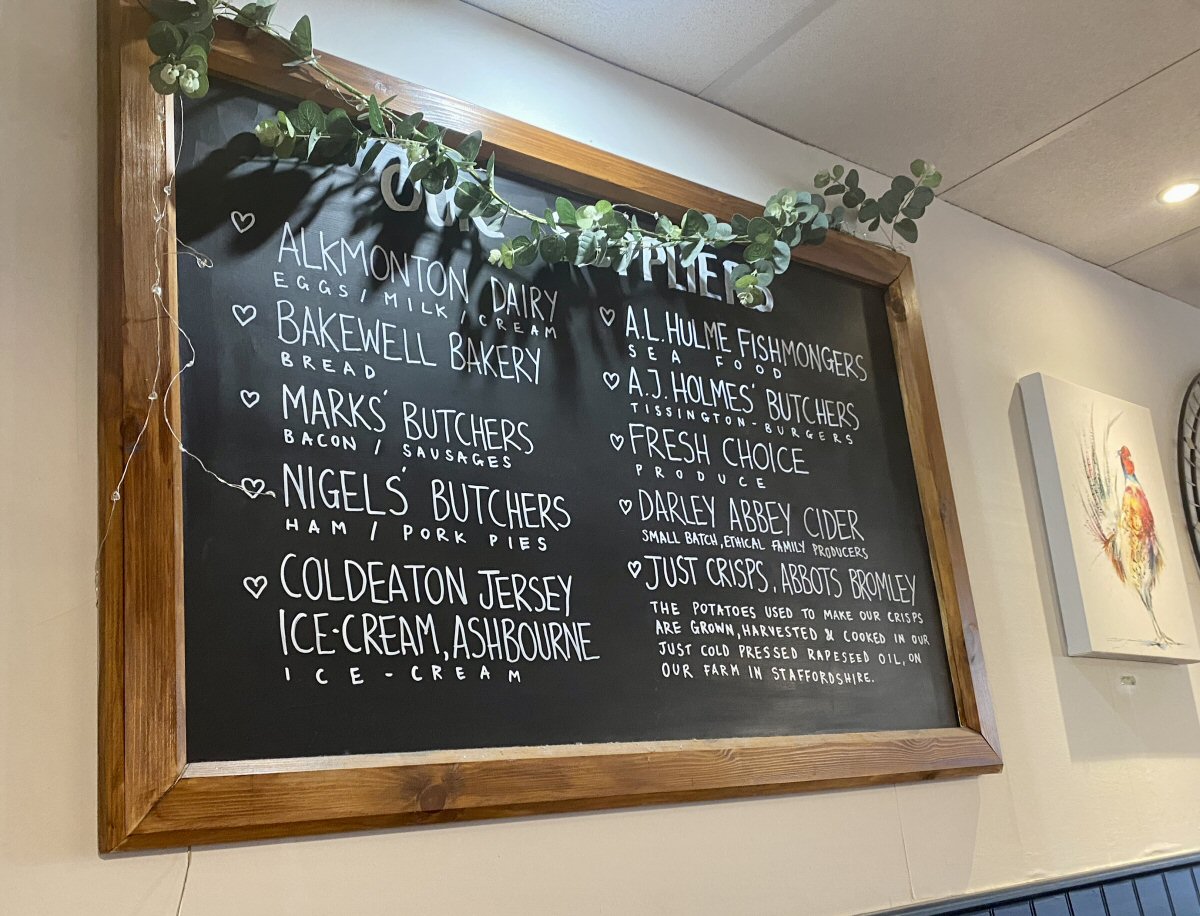 OUR
ALKMONTON DAIRY
EGGS / MILK / CREAM
BAKEWELL BAKERY
BREAD
MARKS' BUTCHERS
BACON / SAUSAGES
NIGELS' BUTCHERS
HAM / PORK PIES
COLDEATON JERSEY
ICE-CREAM, ASHBOURNE
ICE-CREAM
A.L. HULME FISHMONGERS
SEA FOOD
A.J. HOLMES' BUTCHERS
TISSINGTON-BURGERS
FRESH CHOICE
PRODUCE
DARLEY ABBEY CIDER
SMALL BATCH, ETHICAL FAMILY PRODUCERS
JUST CRISPS, ABBOTS BROMLEY
THE POTATOES USED TO MAKE OUR CRISPS
ARE GROWN, HARVESTED & COOKED IN OUR
JUST COLD PRESSED RAPESEED OIL, ON
OUR FARM IN STAFFORDSHIRE.